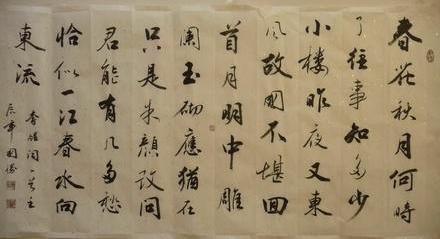 春花秋月何時
了往事知多少
小樓昨夜又東
風故國不堪回
首月明中雕
闌玉砌應猶在
只是朱顏改問
君能有几多愁
恰似一江春水向
東流
李煜詞一首